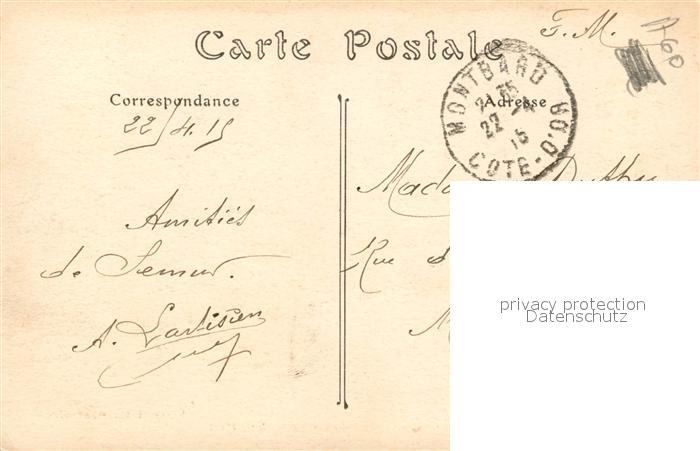 Carte Postale
F. M.
Correspondance
22/4.15
Amitiés
de Semur.
A. Lartisien
Adresse
MONTBARD
22
15
COTE-D'OR
Rue
privacy protection
Datenschutz